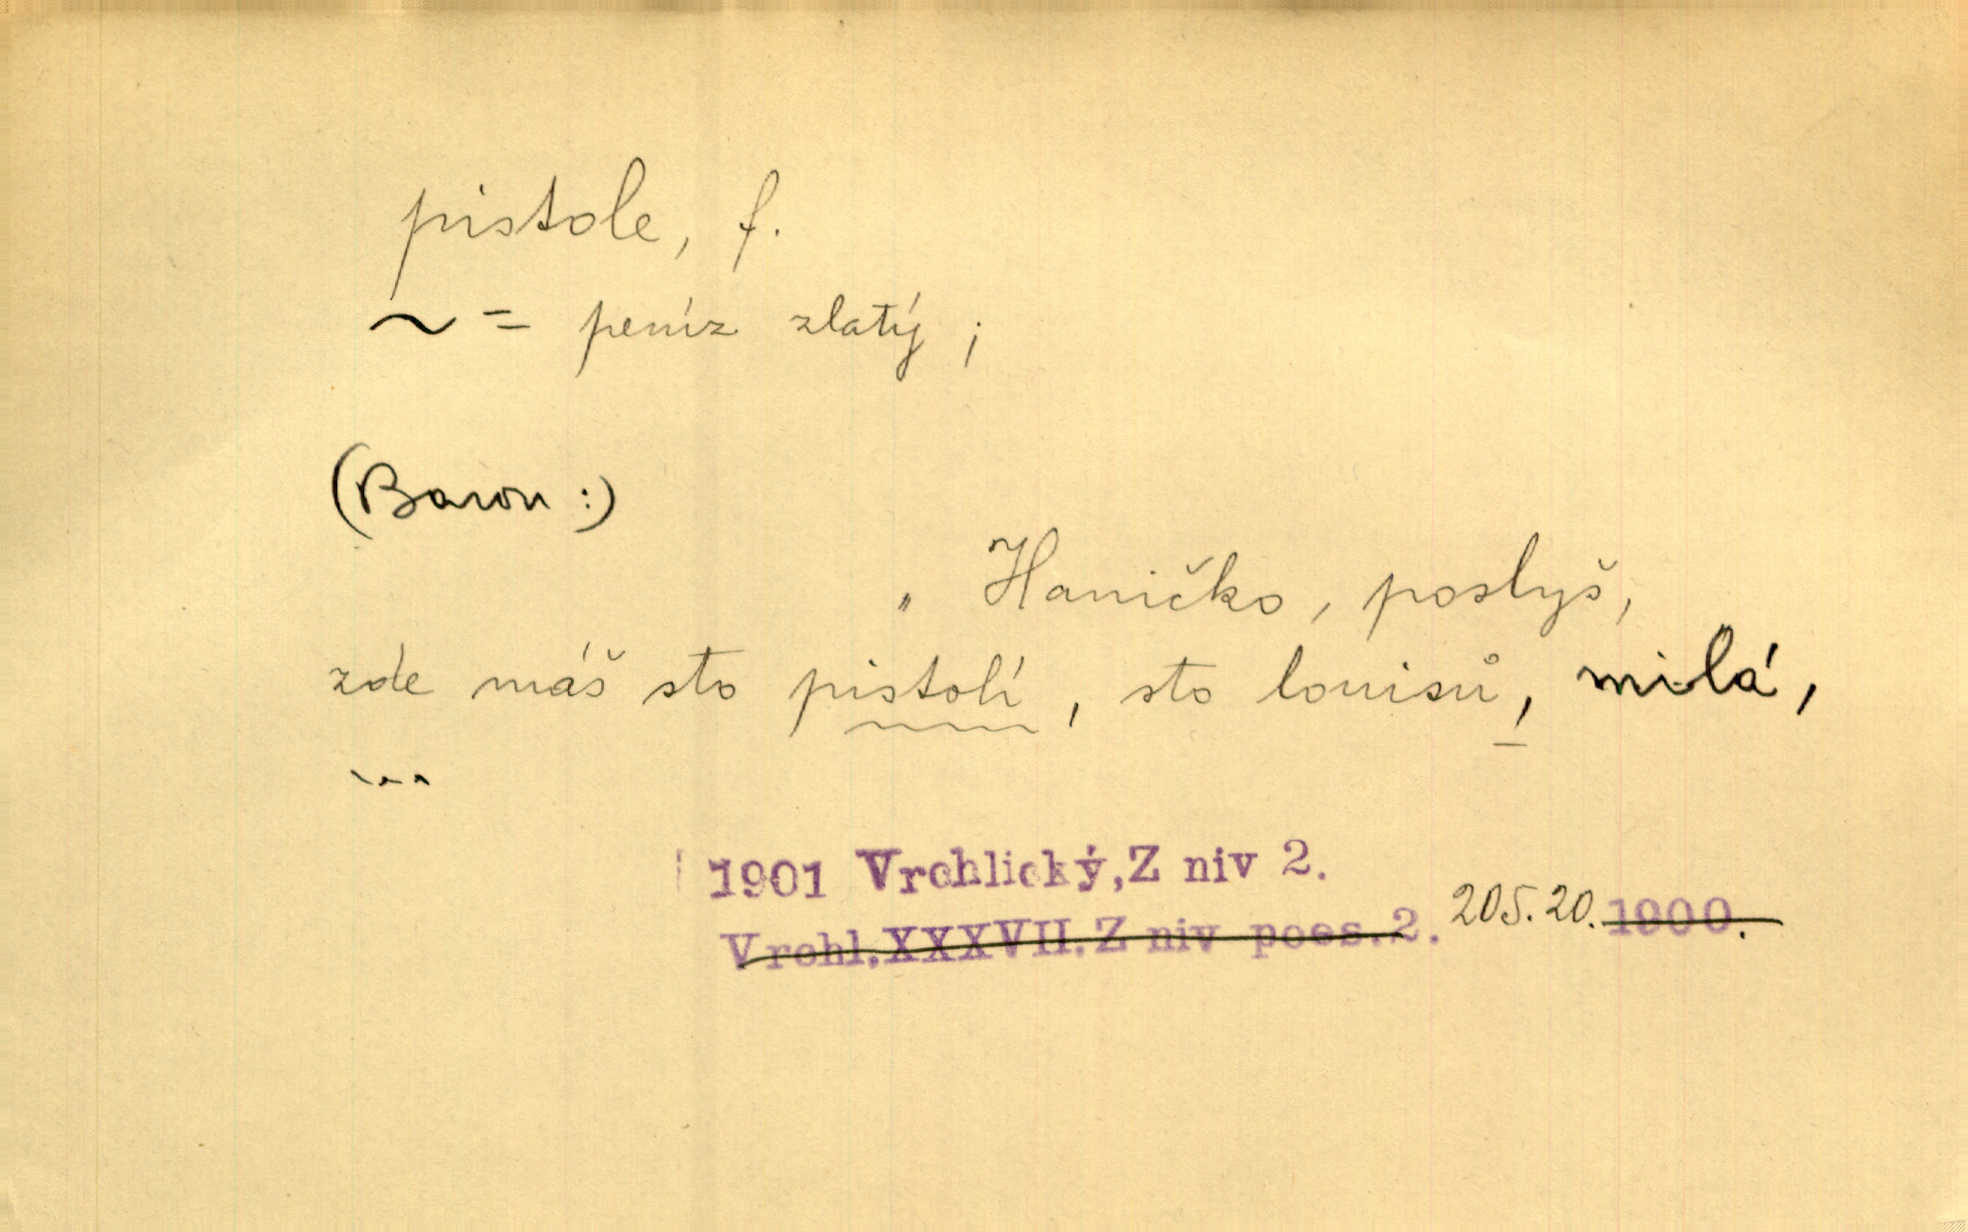 pistole, f.
~ = peníz zlatý ;
(Baron :)
„ Haničko, poslyš,
zde máš sto pistolí, sto louisů, milá,
...
1901 Vrchlický,Z niv 2.
Vrchl.XXXVII.Z niv poes.2. 205.20. 1900.